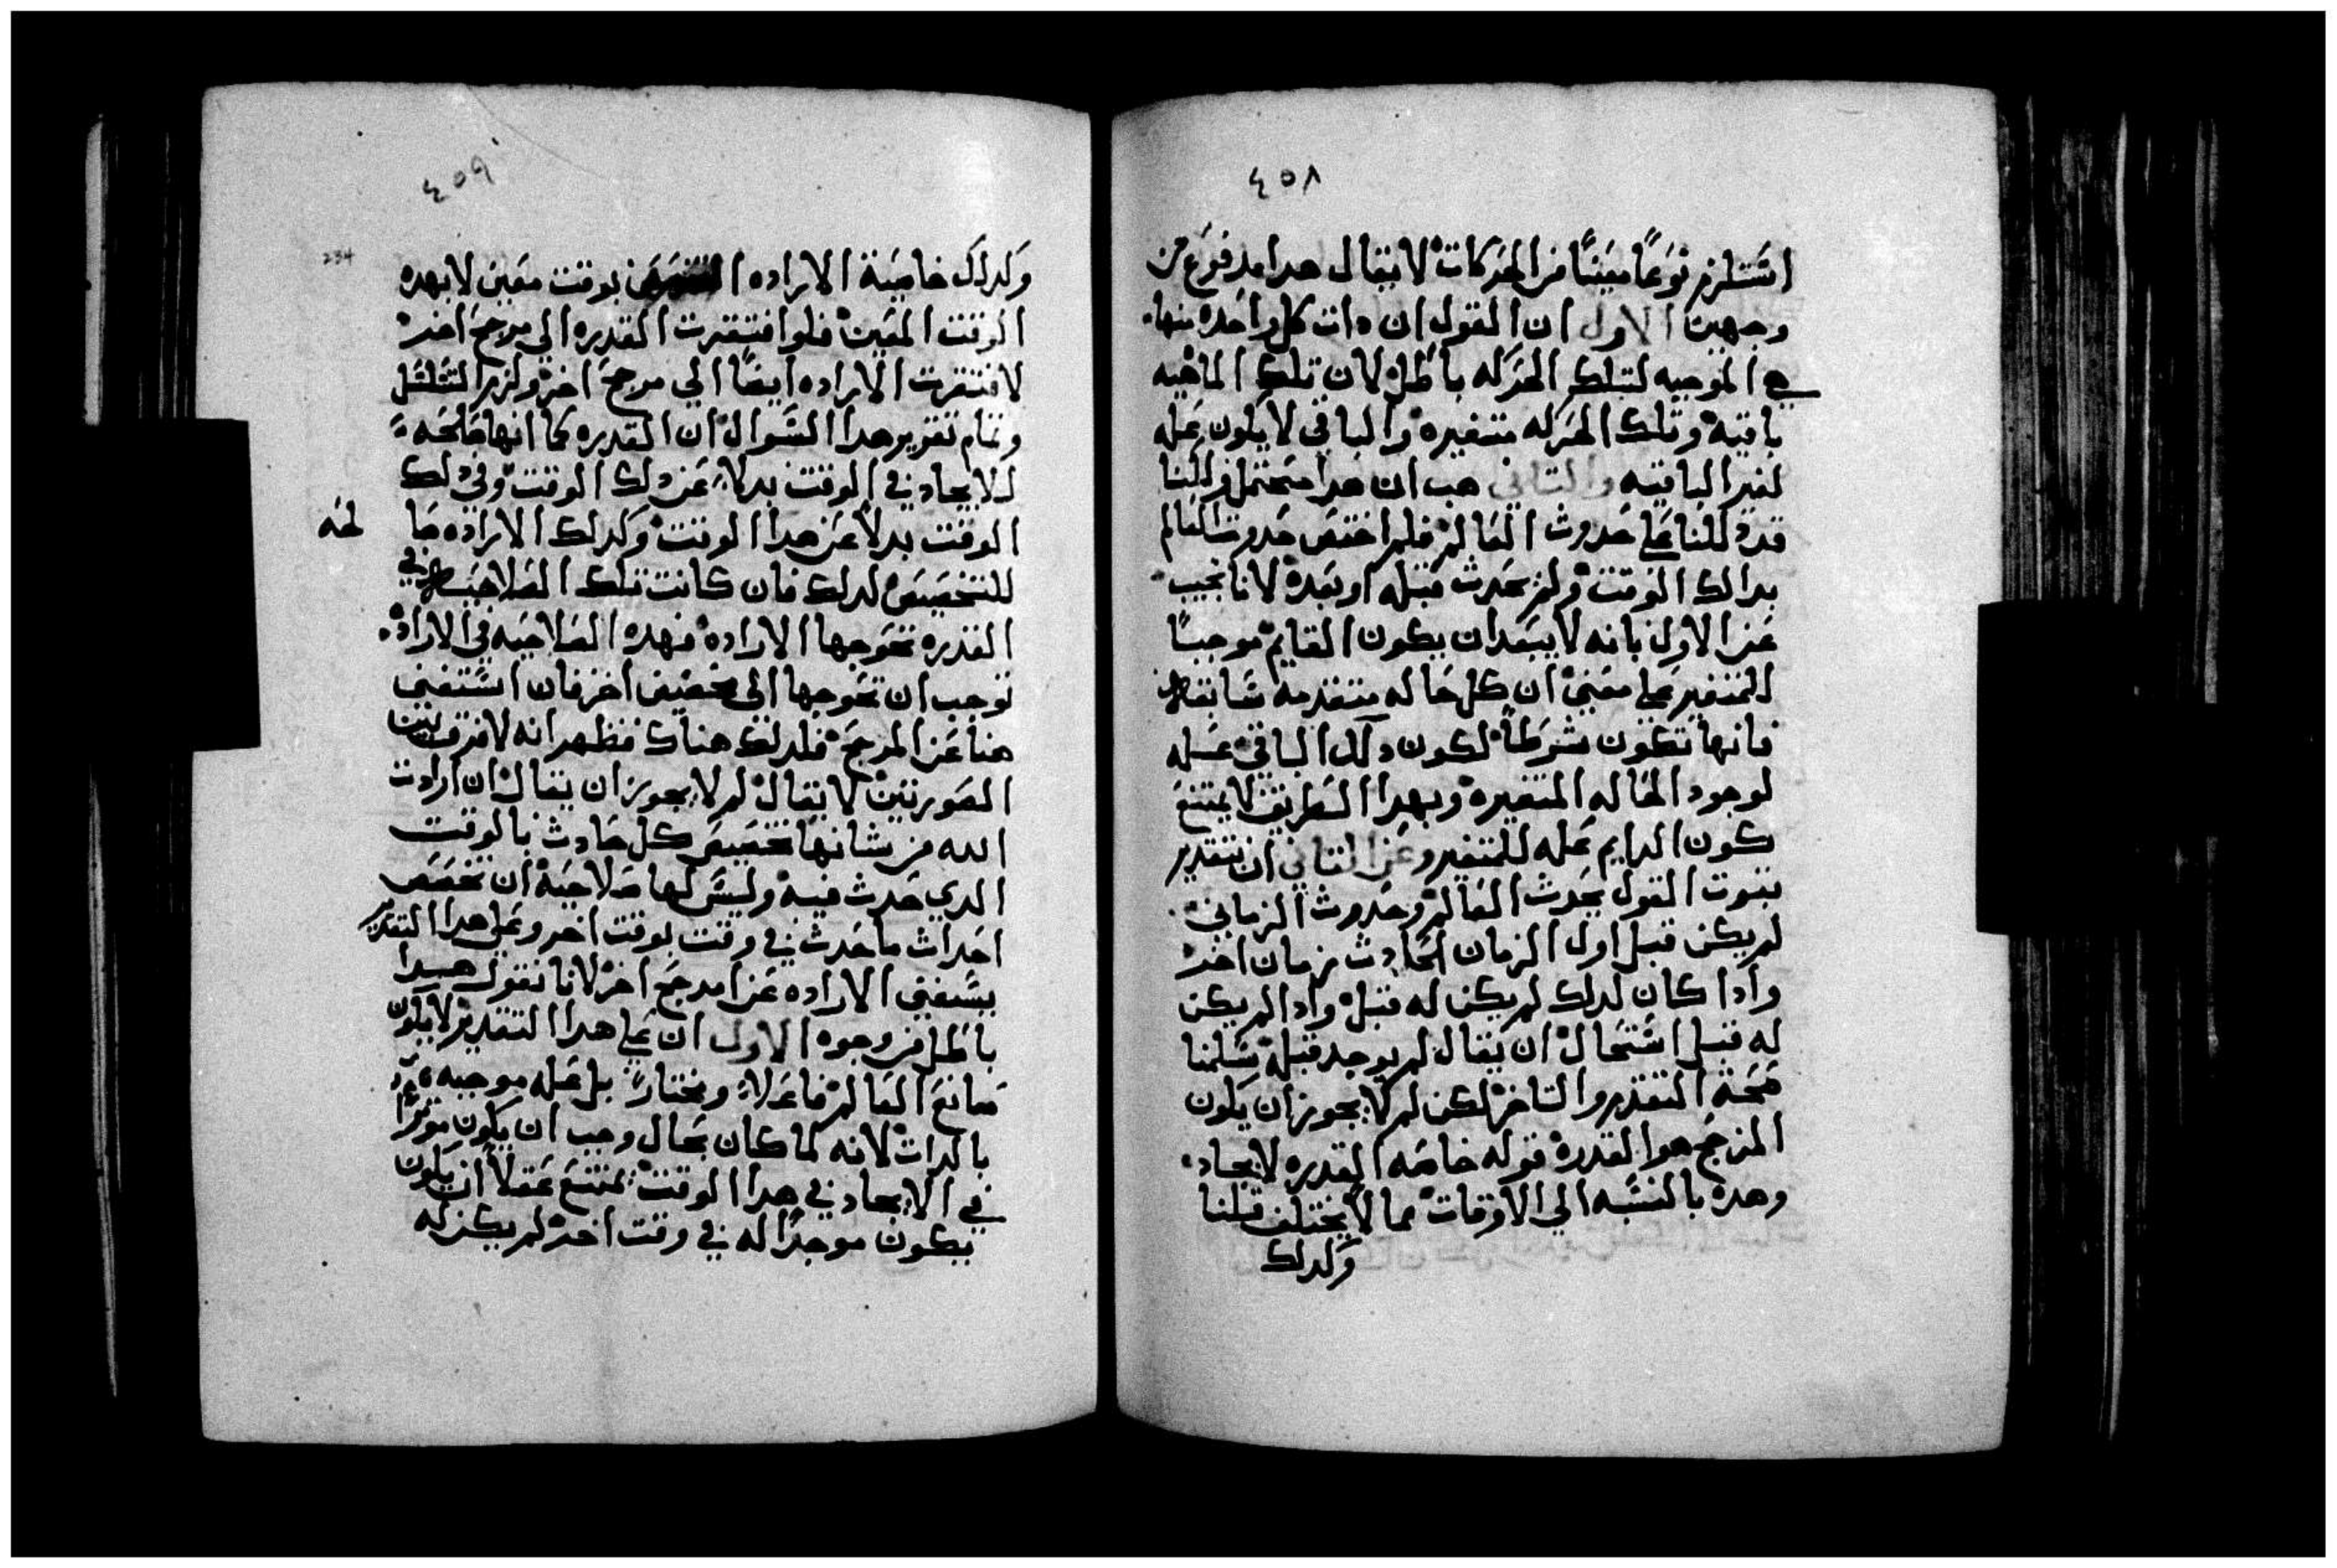 ٤٥٨
استلزم نوعاً معيناً من الحركات لا يقال هدا مدفوع من
وجهين الاول ان القول ان دات كل واحده منها
هي الموجبه لتلك الحركه باطل لان تلك الماهيه
باقيه وتلك الحركه متغيره والباقي لا يكون عله
لغير الباقيه والتاني هب ان هدا محتمل فى
قد دللنا على حدوث العالم فلم اختص حدوث العالم
بدالك الوقت ولم يحدث قبله او بعده لانا نجيب
عن الاول بانه لا يبعد ان يكون القايم موجباً
للمتغير على معنى ان كل حاله متقدمه سابقه
فانها تكون شرطاً لكون دلك الباقي عله
لوجود الحاله المتغيره وبهدا الطريق لا يمتنع
كون الدايم عله للمتغير وعن التاني ان بتقدير
تبوت القول بحدوث العالم وحدوث الزمان
لم يكن قبل اول الزمان الحادث زمان اخر
وادا كان لدلك لم يكن له قبل وادا لم يكن
له قبل استحال ان يقال لم يوجد قبله سلمنا
صحة التقدير والتاخر لكن لم لا يجوز ان يكون
المرجح هو القدره قوله خاصه القدره لايجاد
وهده بالنسبه الي الاوقات مما لا يختلف قلنا
وكدلك
٤٥٩
234
وكدلك خاصية الاراده بوقت معين لا بهده
الوقت المعين فلو افتقرت القدره الي مرجح اخر
لافتقرت الاراده ايضاً الي مرجح اخر ولزم التسلسل
وتمام تقرير هدا السوال ان القدره كما انها صالحه
للايجاد في الوقت بدلاً عن دلك الوقت وفي دلك
الوقت بدلاً عن هدا الوقت وكدلك الاراده صا
لحه
للتخصيص لدلك فان كانت تلك الصلاحيه في
القدره تحوجها الاراده فهده الصلاحيه في الاراده
توجب ان تحوجها الى مخصص اخر فان استغنى
هنا عن المرجح فلدلك هناك فظهر انه لا فرق بين
الصورتين لا يقال لم لا يجوز ان يقال ان ارادت
الله من شانها تخصيص كل حادث بالوقت
الدي حدث فيه وليس لها صلاحية ان تخصص
احداث ما حدث في وقت بوقت اخر وعلى هدا التقدير
يستغني الاراده عن امرجح اخر لانا نقول هدا
باطل من وجوه الاول ان على هدا التقدير لا يكون
صانع العالم فاعلاً ومختاراً بل عله موجبه
بالدات لانه لما كان بحال وجب ان يكون موثراً
في الايجاد في هدا الوقت يمتنع عقلاً ان يكون
يكون موجداً له في وقت اخر لم يكن له